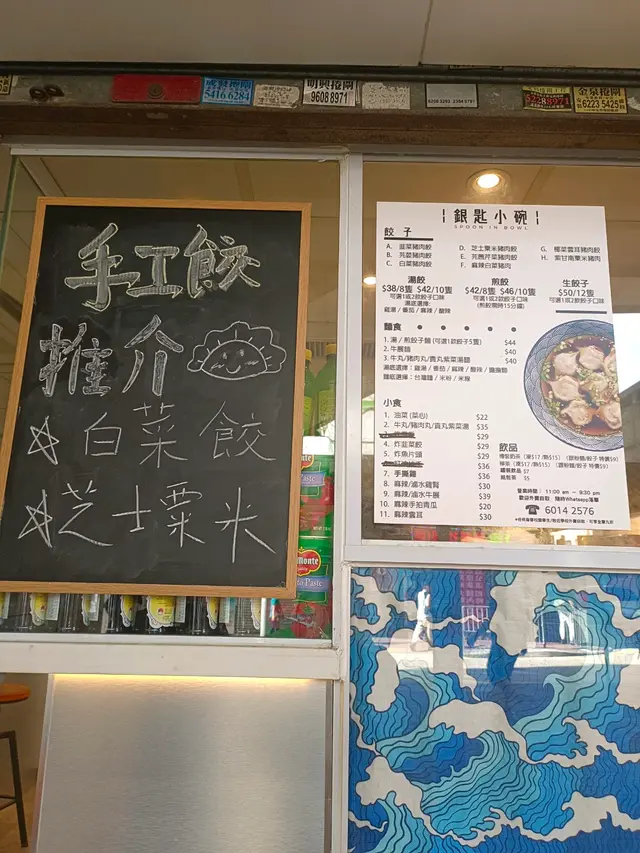 5416 6284
明興捲閘
9608 8971
金泉捲閘
6223 5425
手工餃
推介
☆白菜餃
☆芝士粟米
銀匙小碗
SPOON IN BOWL
餃子
A. 韮菜豬肉餃
B. 芫荽豬肉餃
C. 白菜豬肉餃
D. 芝士粟米豬肉餃
E. 芫茜芹菜豬肉餃
F. 麻辣白菜豬肉
G. 榨菜雲耳豬肉餃
H. 紫甘南粟米豬肉
湯餃
$38/8隻 $42/10隻
可選1或2款餃子口味
湯底選擇:
雞湯 / 番茄 / 麻辣 / 酸辣
煎餃
$42/8隻 $46/10隻
可選1或2款餃子口味
(煎餃需時15分鐘)
生餃子
$50/12隻
可選1或2款餃子口味
麵食
1. 湯 / 煎餃子麵 (可選1款餃子5隻) $44
2. 牛展麵 $40
3. 牛丸/豬肉丸/貢丸紫菜湯麵 $40
湯底選擇：雞湯 / 番茄 / 麻辣 / 酸辣 / 擔擔麵
麵底選擇：台灣麵 / 米粉 / 米線
小食
1. 油菜 (菜心) $22
2. 牛丸/豬肉丸/貢丸紫菜湯 $35
$29
4. 炸韮菜餃 $29
5. 炸魚片頭 $29
$29
7. 手撕雞 $36
8. 麻辣/滷水雞腎 $30
9. 麻辣/滷水牛展 $39
10. 麻辣手拍青瓜 $20
11. 麻辣雲耳 $30
飲品
罐裝飲品 $7
紙包茶 $5
營業時間：11:00 am － 9:30 pm
歡迎外賣自取 隨時Whatsapp落單
6014 2576
Monte
Paste